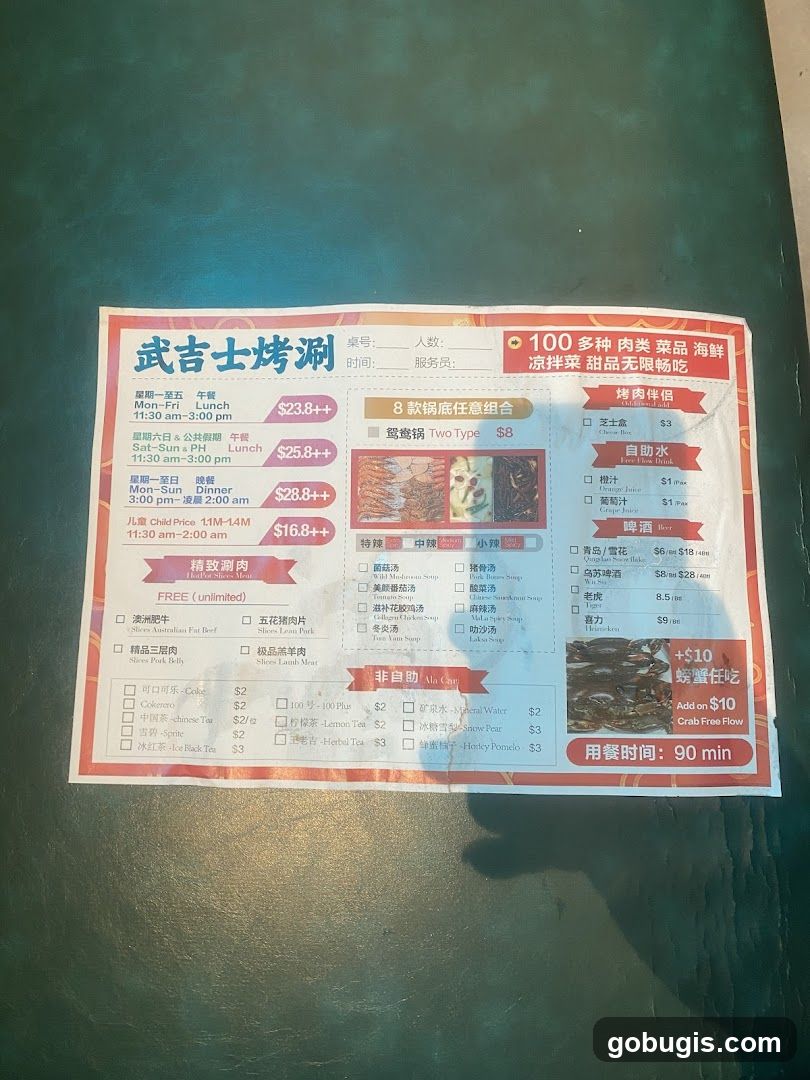 武吉士烤涮
桌号:
人数:
时间:
服务员:
100 多种 肉类 菜品 海鲜
凉拌菜 甜品无限畅吃
星期一至五 午餐
Mon-Fri Lunch
11:30 am-3:00 pm
$23.8++
星期六日 & 公共假期 午餐
Sat-Sun & PH Lunch
11:30 am-3:00 pm
$25.8++
星期一至日 晚餐
Mon-Sun Dinner
3:00 pm- 凌晨 2:00 am
$28.8++
儿童 Child Price 1.1M-1.4M
11:30 am-2:00 am
$16.8++
精致涮肉
HotPot Slices Meat
FREE (unlimited)
澳洲肥牛
Slices Australian Fat Beef
五花猪肉片
Slices Lean Pork
精品三层肉
Slices Pork Belly
极品羔羊肉
Slices Lamb Meat
8 款锅底任意组合
鸳鸯锅 Two Type $8
特辣
中辣 Medium Spicy
小辣 Mild Spicy
菌菇汤
Wild Mushroom Soup
猪骨汤
Pork Bones Soup
美颜番茄汤
Tomato Soup
酸菜汤
Chinese Sauerkraut Soup
滋补花胶鸡汤
Collagen Chicken Soup
麻辣汤
MaLa Spicy Soup
冬炎汤
Tom Yam Soup
叻沙汤
Laksa Soup
烤肉伴侣
芝士盒 $3
Cheese Box
自助水
Free Flow Drink
橙汁 $1 /Pax
Orange Juice
葡萄汁 $1 /Pax
Grape Juice
啤酒 Beer
青岛 / 雪花 $6/Btl $18 /4Btl
Qingdao Snowflake
乌苏啤酒 $8/Btl $28 /4Btl
Wu Su
老虎 8.5 /Btl
Tiger
喜力 $9 /Btl
Heineken
+$10
螃蟹任吃
Add on $10
Crab Free Flow
用餐时间: 90 min
非自助 Ala Cart
可口可乐 -Coke $2
Cokerero $2
中国茶 -chinese Tea $2/位
雪碧 -Sprite $2
冰红茶 -Ice Black Tea $3
100 号 - 100 Plus $2
柠檬茶 -Lemon Tea $2
王老吉 -Herbal Tea $3
矿泉水 -Mineral Water $2
冰糖雪梨 -Snow Pear $3
蜂蜜柚子 -Honey Pomelo $3
gobugis.com